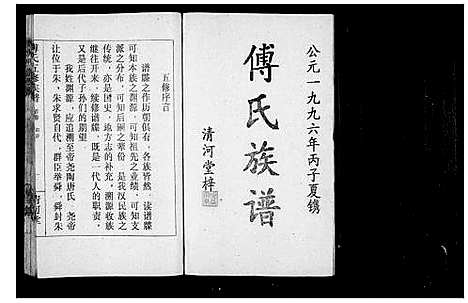 公元一九九六年丙子夏镌
傅氏族譜
清河堂梓
五修序言
谱牒之作历朝俱有，各族皆然。读谱牒
可知本族之渊源，可知祖先之业绩，可知支
派之分布，可知后嗣之荤份，是我汉民族之
传统，亦是国史，地方志的补充，溯源收族
继往开来，续修谱牒，既是一代人的职责，
又是后代子孙们的期望。
我姓渊源，应追溯至帝尧陶唐氏，尧帝
让位于朱，朱求贤自代，群臣举舜，舜封朱